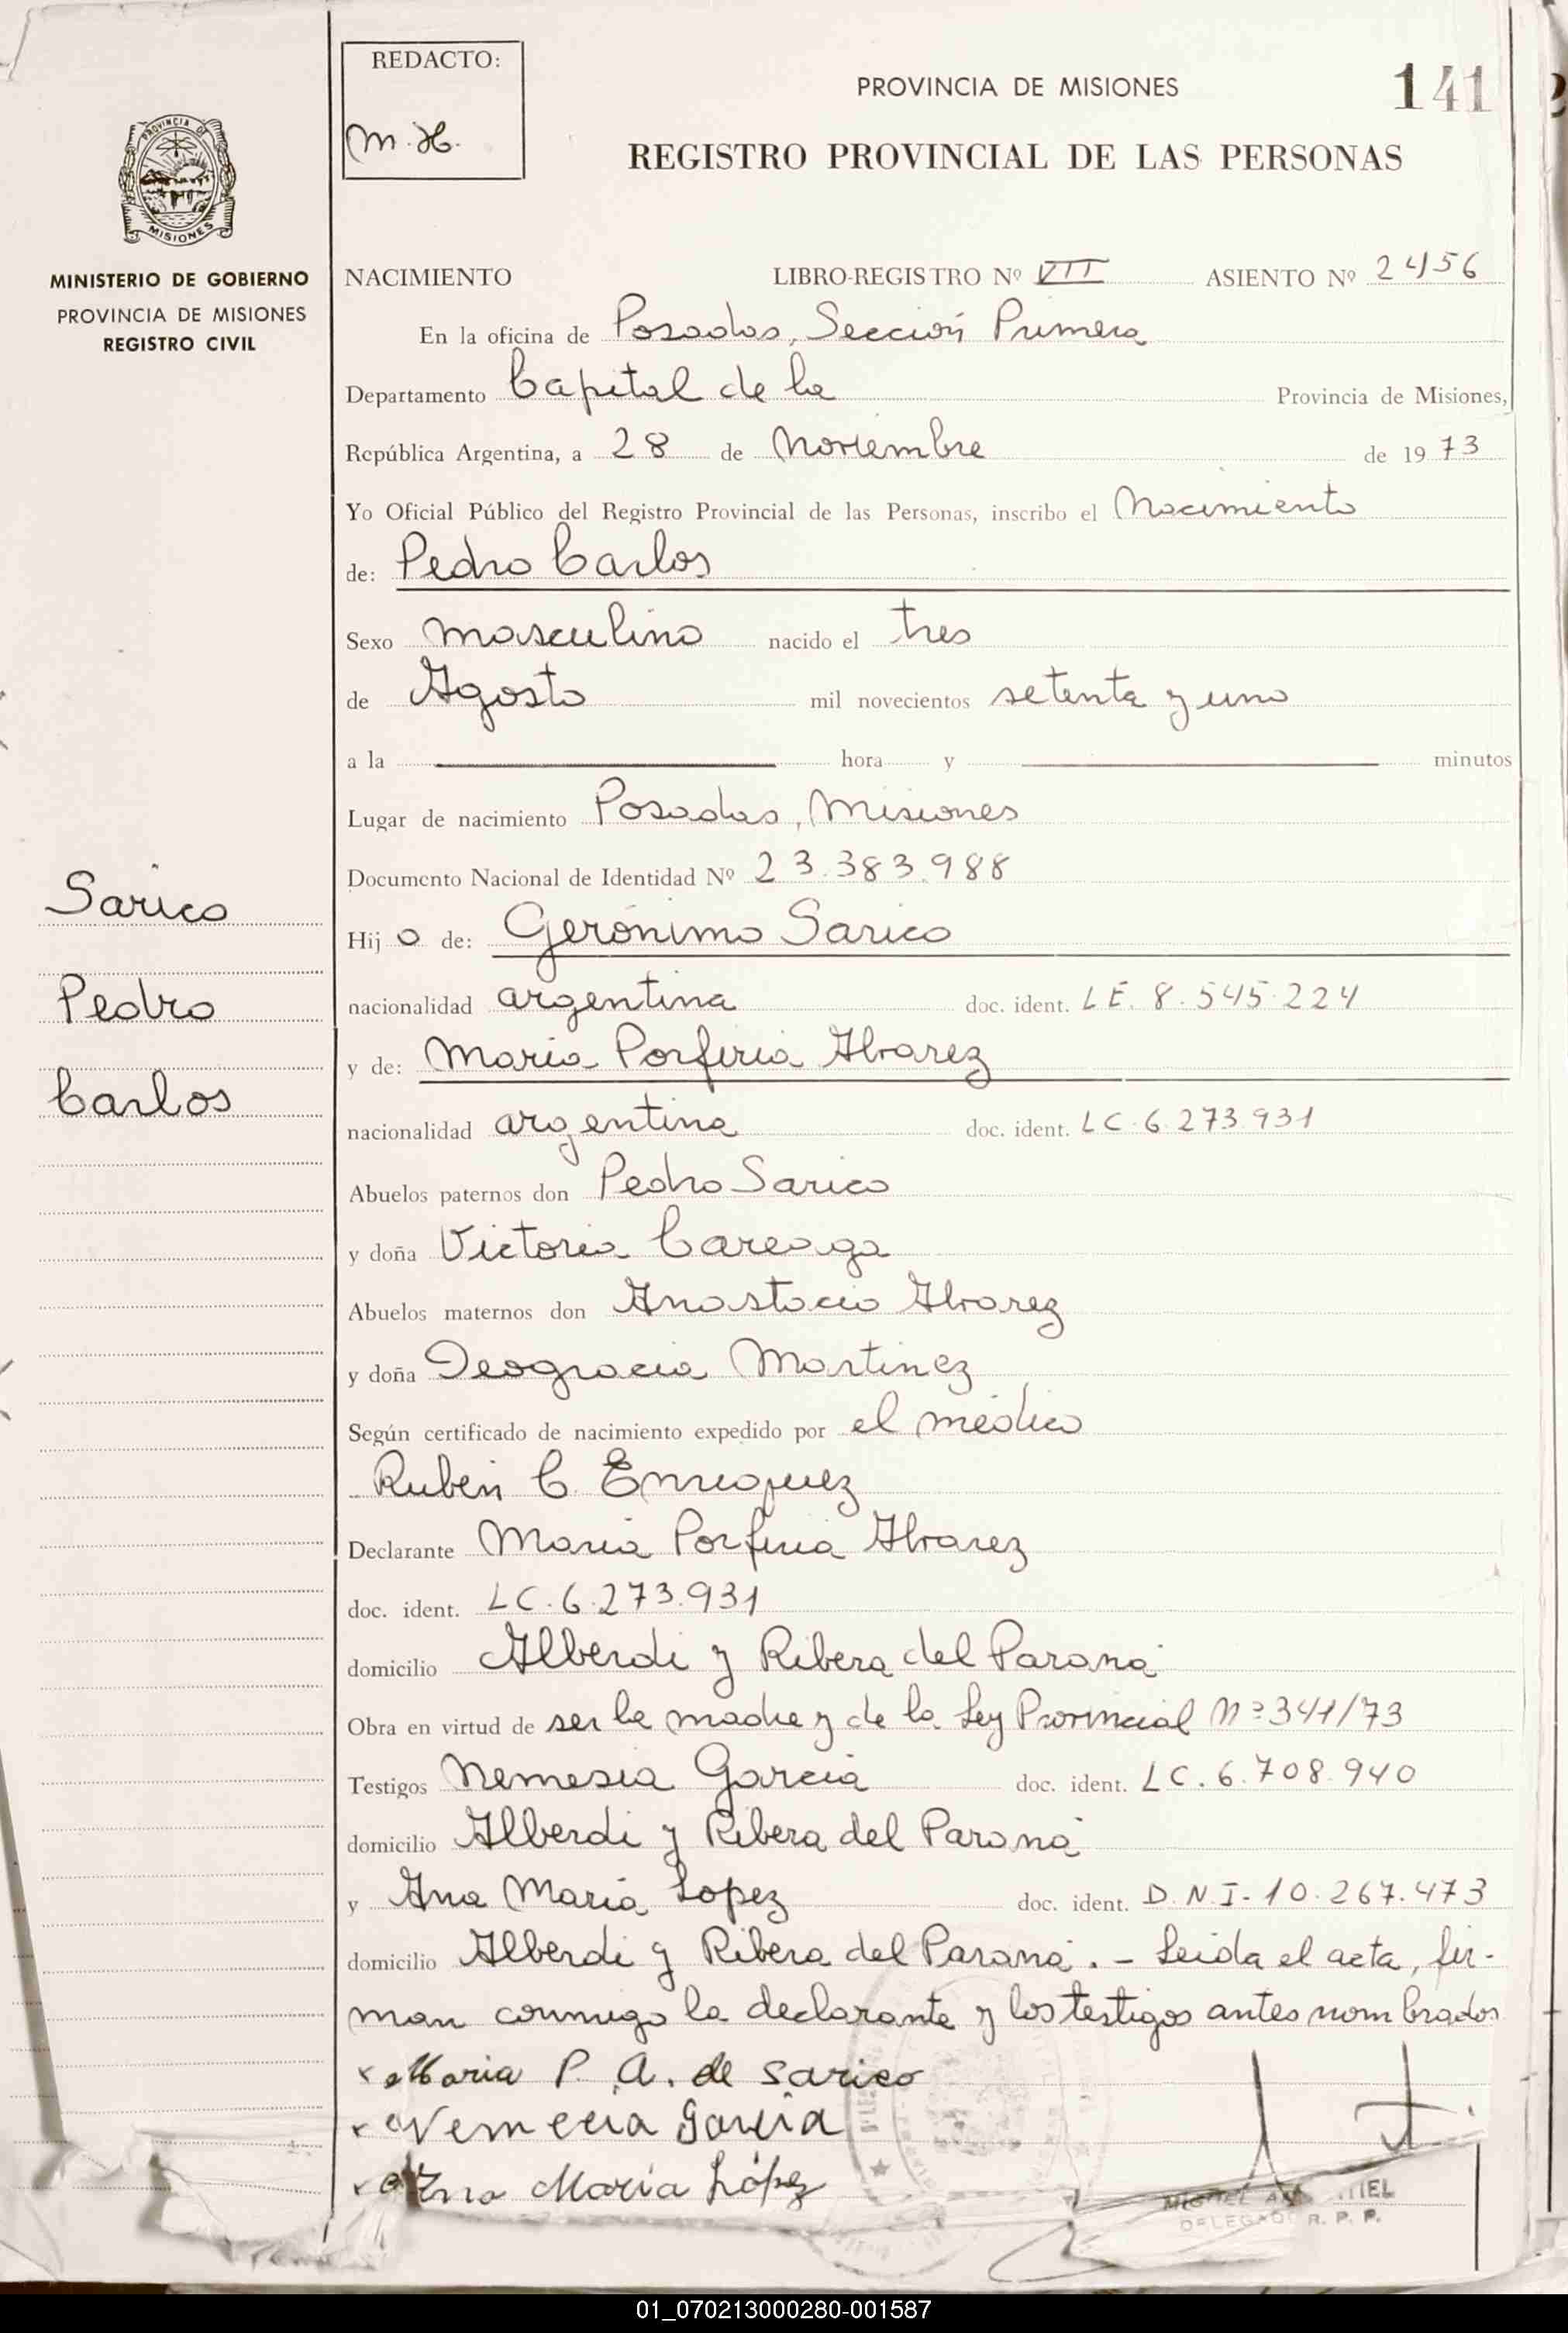 REDACTO:
m. H.
PROVINCIA DE MISIONES
141
REGISTRO PROVINCIAL DE LAS PERSONAS
PROVINCIA DE
MISIONES
MINISTERIO DE GOBIERNO
PROVINCIA DE MISIONES
REGISTRO CIVIL
NACIMIENTO LIBRO-REGISTRO Nº VII ASIENTO Nº 2456
En la oficina de Posadas, Sección Primera
Departamento Capital de la Provincia de Misiones,
República Argentina, a 28 de Noviembre de 1973
Yo Oficial Público del Registro Provincial de las Personas, inscribo el Nacimiento
de: Pedro Carlos
Sexo masculino nacido el tres
de Agosto mil novecientos setenta y uno
a la hora y minutos
Lugar de nacimiento Posadas, Misiones
Documento Nacional de Identidad Nº 23.383.988
Sarico
Pedro
Carlos
Hijo de: Gerónimo Sarico
nacionalidad argentina doc. ident. L E. 8.545.224
y de: María Porfiria Alvarez
nacionalidad argentina doc. ident. L C. 6.273.931
Abuelos paternos don Pedro Sarico
y doña Victoria Careaga
Abuelos maternos don Anastacio Alvarez
y doña Deogracia Martinez
Según certificado de nacimiento expedido por el médico
Rubén C. Enriquez
Declarante María Porfiria Alvarez
doc. ident. L C. 6.273.931
domicilio Alberdi y Ribera del Paraná
Obra en virtud de ser la madre y de la Ley Provincial Nº 341/73
Testigos Nemesia García doc. ident. L C. 6.708.940
domicilio Alberdi y Ribera del Paraná
y Ana María Lopez doc. ident. D.N.I. 10.267.473
domicilio Alberdi y Ribera del Paraná. - Leída el acta, fir-
man conmigo la declarante y los testigos antes nombrados
x Maria P. A. de Sarico
x Nemecia García
x Ana María López
MIGUEL
DELEGADO R. P. P.
01_070213000280-001587